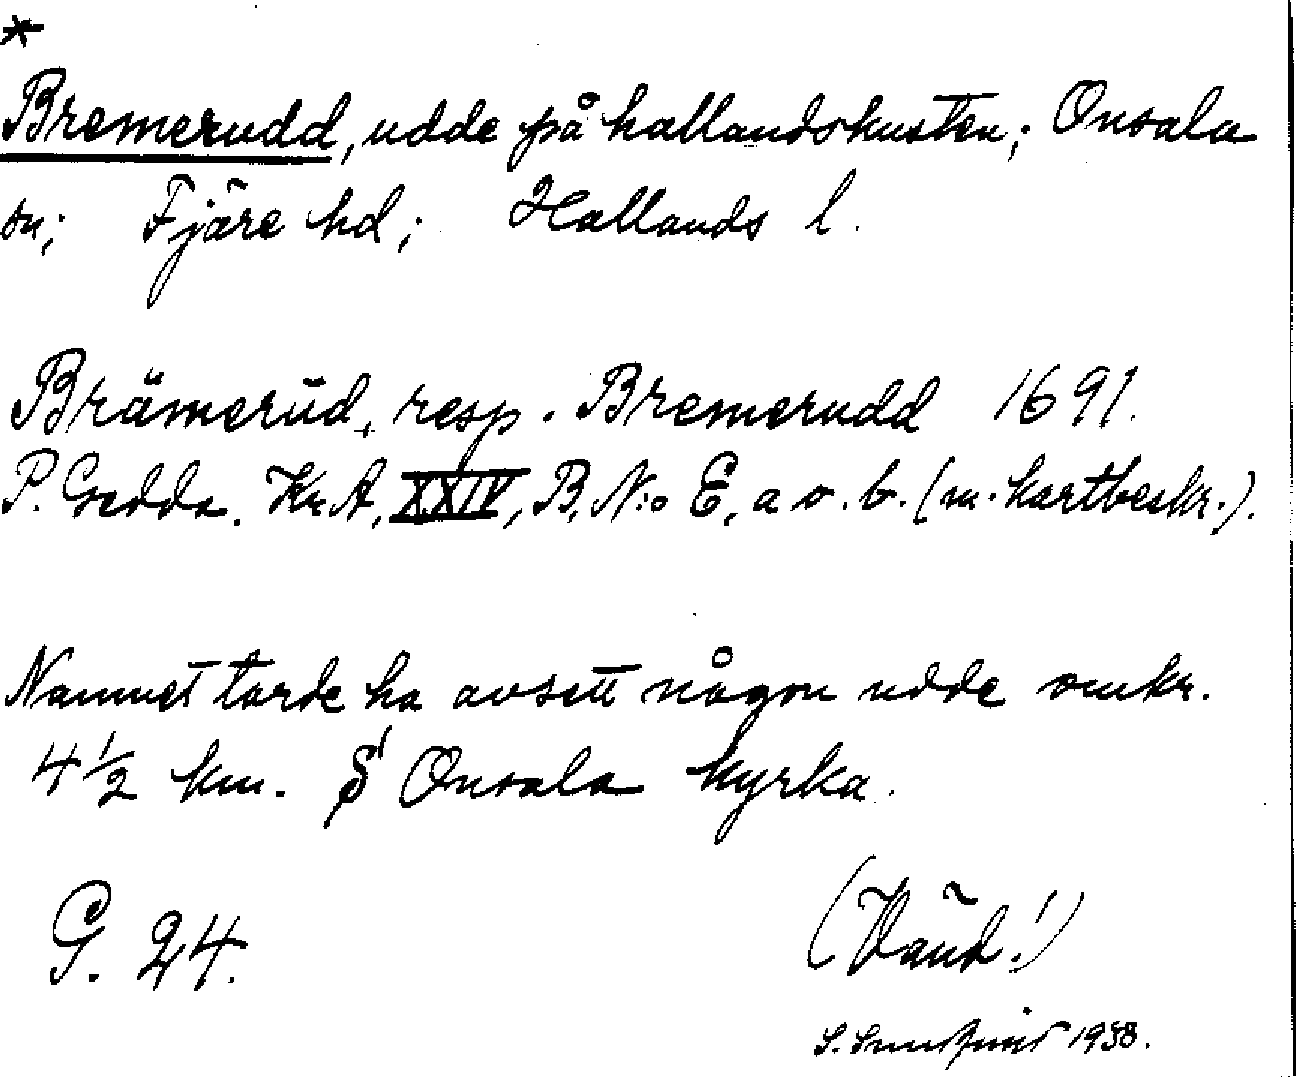 *
Bremerudd, udde på hallandskusten; Onsala
sn; Fjäre hd; Hallands l.
Brämerud, resp. Bremerudd 1691.
P. Gedda. Kr.A, XXIV, B, N:o E, a o. b. (m. kartbeskr.).
Namnet torde ha avsett någon udde omkr.
4 1/2 km. S Onsala kyrka.
G. 24.
(Vänd!)
S. 1938.